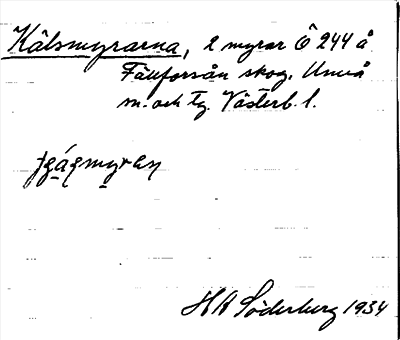 Kålsmyrarna, 2 myrar Ö 244 å
Fällforsån skog. Umeå
m. och tg. Västerb. l.
H A Söderberg 1934